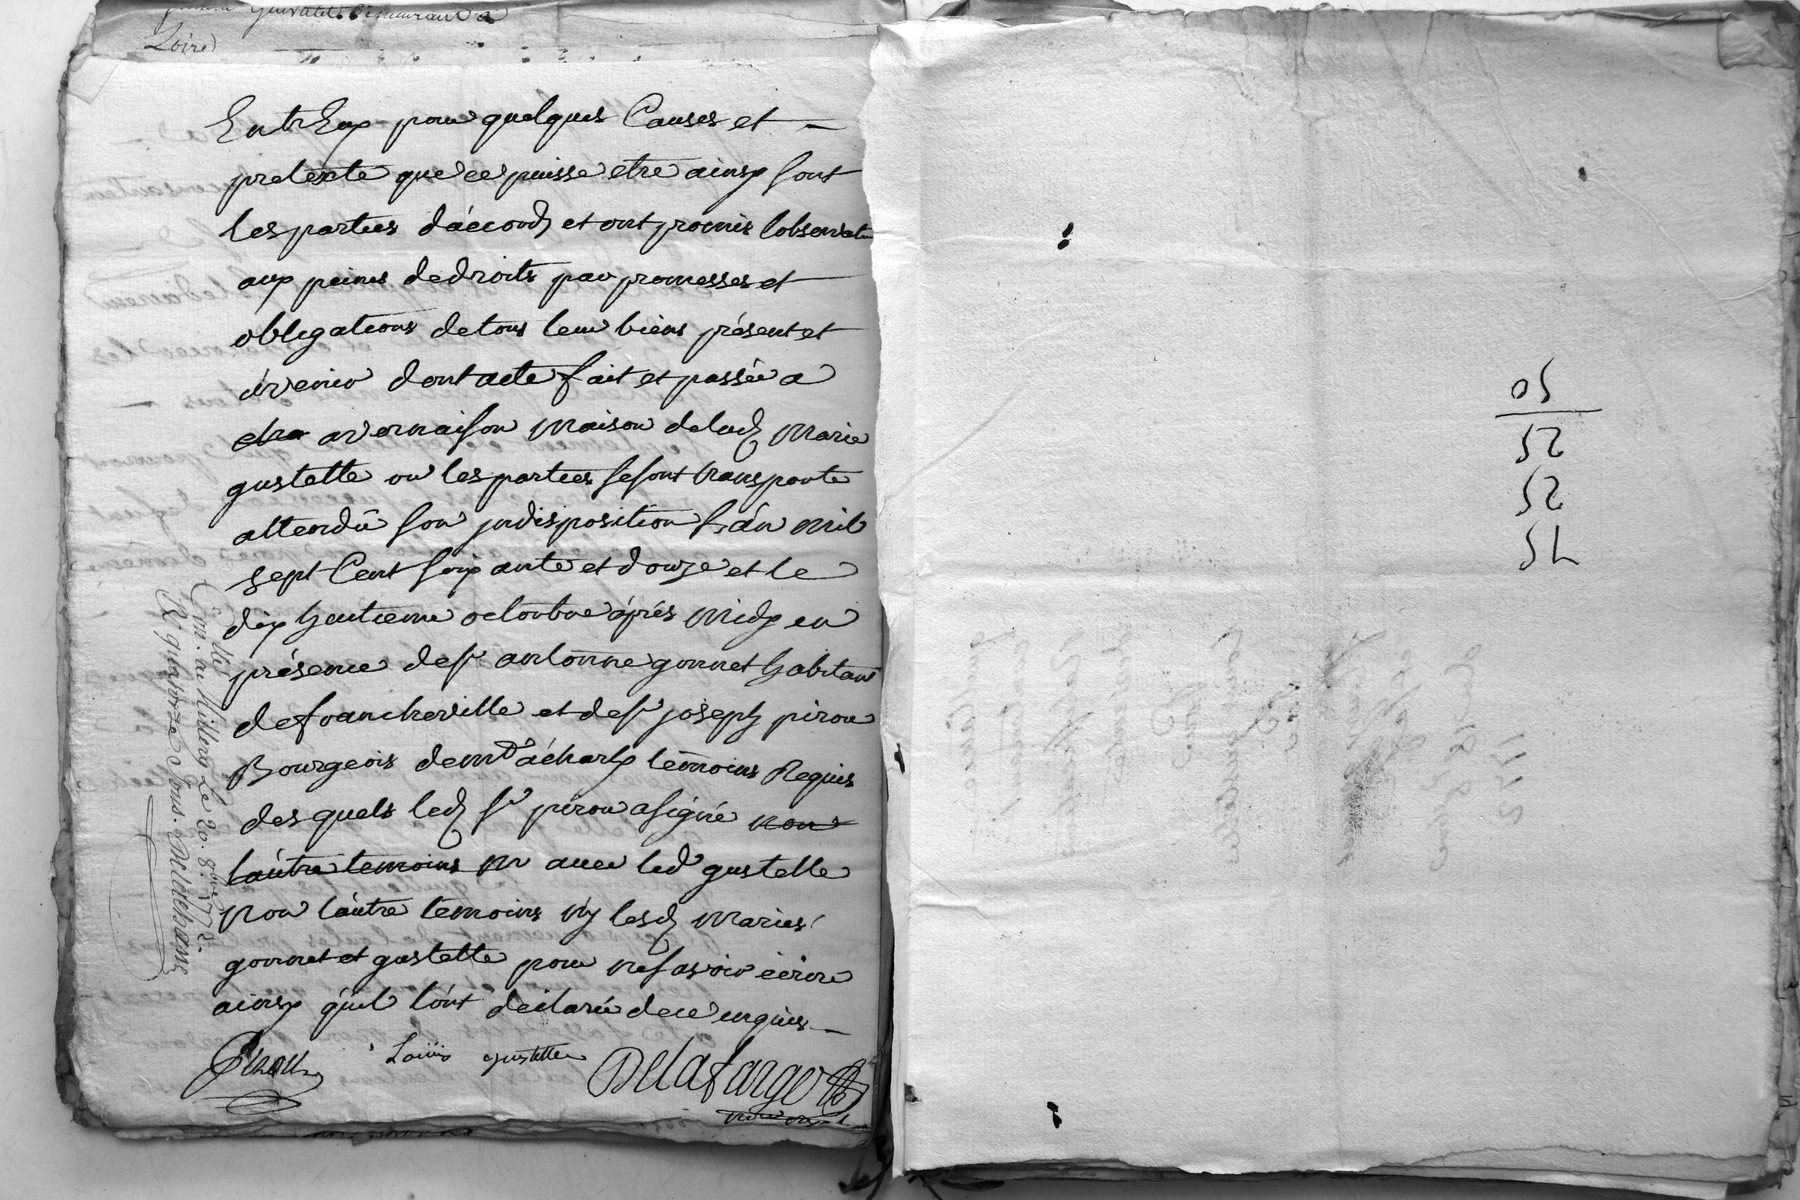 Loire
Entr Eux pour quelques Causes et
pretexte que ce puisse etre ainsy sont
les parties d'accord et ont promis lobserver
aux peines de droits par promesses et
obligations de tous leur biens présent et
àvenir dont acte fait et passée a
etra avernaison Maison delad Marie
gustelle ou les parties se sont transporté
attendu son jndisposition L'an mil
sept Cent soixante et douze et le
dix huitieme octoubre après Midy en
présence de sr antoinne gonnet habitant
de francheville et de sr joseph pirou
Bourgeois de mt d'acharly temoins Requis
des quels led sr pirou a signé non
lautre temoins ni avec led gustelle
Non lautre temoins Ny lesd Maries
gonnet et gustelle pour ne savoir écrire
ainsy quil l'ont declarée de ce enquis
Louis gustelle
Delafarge
Con. à Millery Le 20. 8bre 1772.
R. quatorze sous. Deléchaise
50
52
52
75